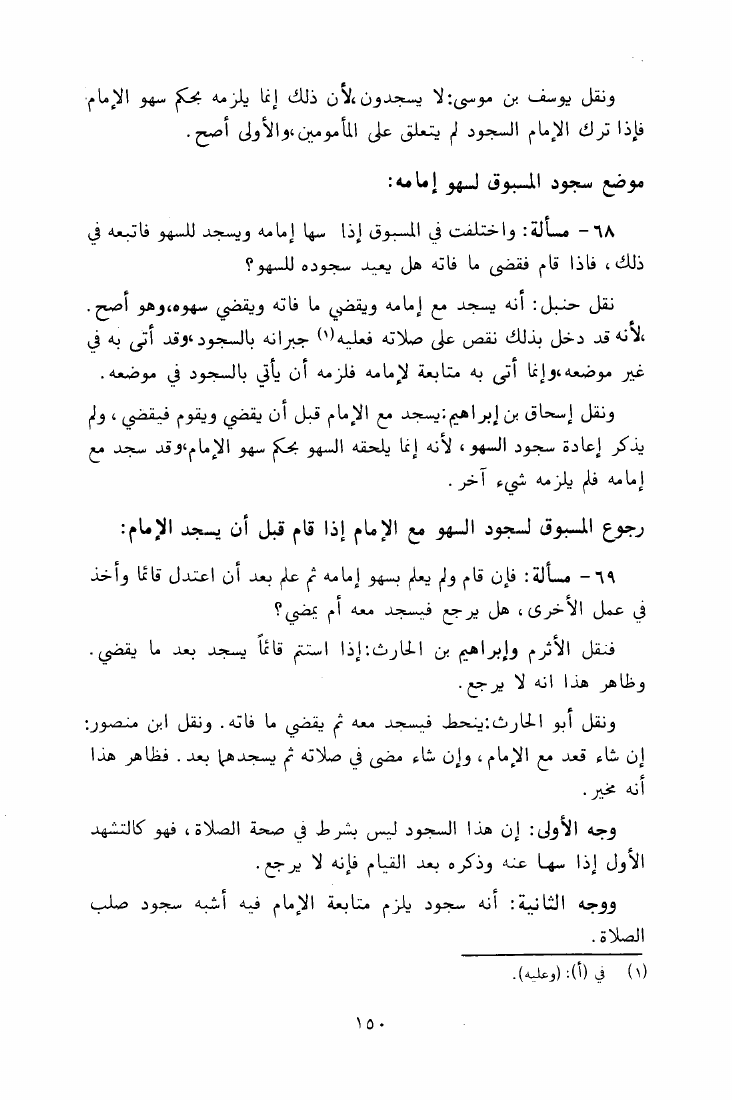 ونقل يوسف بن موسى: لا يسجدون، لأن ذلك إنما يلزمه بحكم سهو الإمام
فإذا ترك الإمام السجود لم يتعلق على المأمومين، والأولى أصح.
موضع سجود المسبوق لسهو إمامه:
٦٨ - مسألة: واختلفت في المسبوق إذا سها إمامه ويسجد للسهو فاتبعه في
ذلك، فاذا قام فقضى ما فاته هل يعيد سجوده للسهو؟
نقل حنبل: أنه يسجد مع إمامه ويقضي ما فاته ويقضي سهوه، وهو أصح.
، لأنه قد دخل بذلك نقص على صلاته فعليه(١) جبرانه بالسجود، وقد أتى به في
غير موضعه، وإنما أتى به متابعة لإمامه فلزمه أن يأتي بالسجود في موضعه.
ونقل إسحاق بن إبراهيم: يسجد مع الإمام قبل أن يقضي ويقوم فيقضي، ولم
يذكر إعادة سجود السهو، لأنه إنما يلحقه السهو بحكم سهو الإمام، وقد سجد مع
إمامه فلم يلزمه شيء آخر.
رجوع المسبوق لسجود السهو مع الإمام إذا قام قبل أن يسجد الإمام:
٦٩ - مسألة: فإن قام ولم يعلم بسهو إمامه ثم علم بعد أن اعتدل قائمًا وأخذ
في عمل الأخرى، هل يرجع فيسجد معه أم يمضي؟
فنقل الأثرم وإبراهيم بن الحارث: إذا استتم قائماً يسجد بعد ما يقضي.
وظاهر هذا انه لا يرجع.
ونقل أبو الحارث: ينحط فيسجد معه ثم يقضي ما فاته. ونقل ابن منصور:
إن شاء قعد مع الإمام، وإن شاء مضى في صلاته ثم يسجدهما بعد. فظاهر هذا
أنه مخير.
وجه الأولى: إن هذا السجود ليس بشرط في صحة الصلاة، فهو كالتشهد
الأول إذا سها عنه وذكره بعد القيام فإنه لا يرجع.
ووجه الثانية: أنه سجود يلزم متابعة الإمام فيه أشبه سجود صلب
الصلاة.
(١) في (أ): (وعليه).
١٥٠